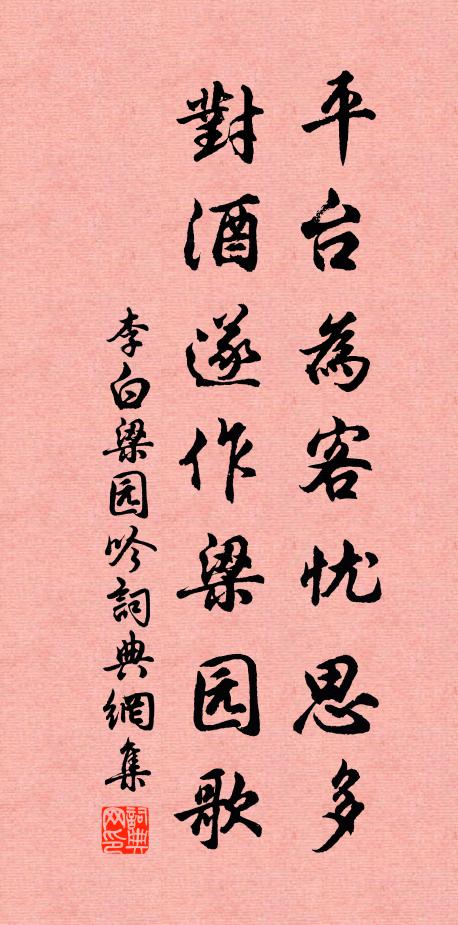 平台為客忧思多
對酒遂作梁园歌
李白梁园吟詞典網集
詞典网印